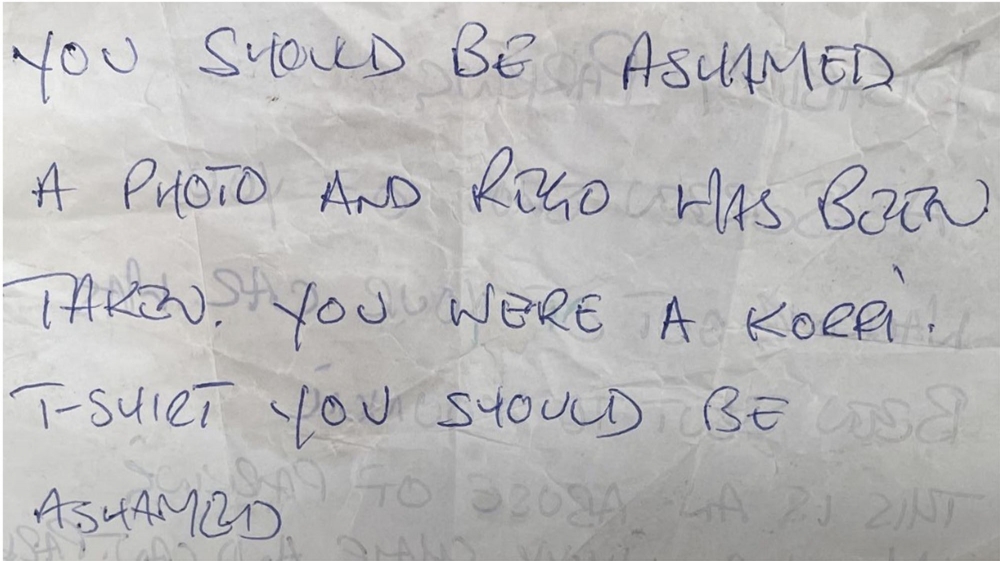 YOU SHOULD BE ASHAMED
A PHOTO AND REGO HAS BEEN
TAKEN. YOU WERE A KORRI.
T-SHIRT YOU SHOULD BE
ASHAMED